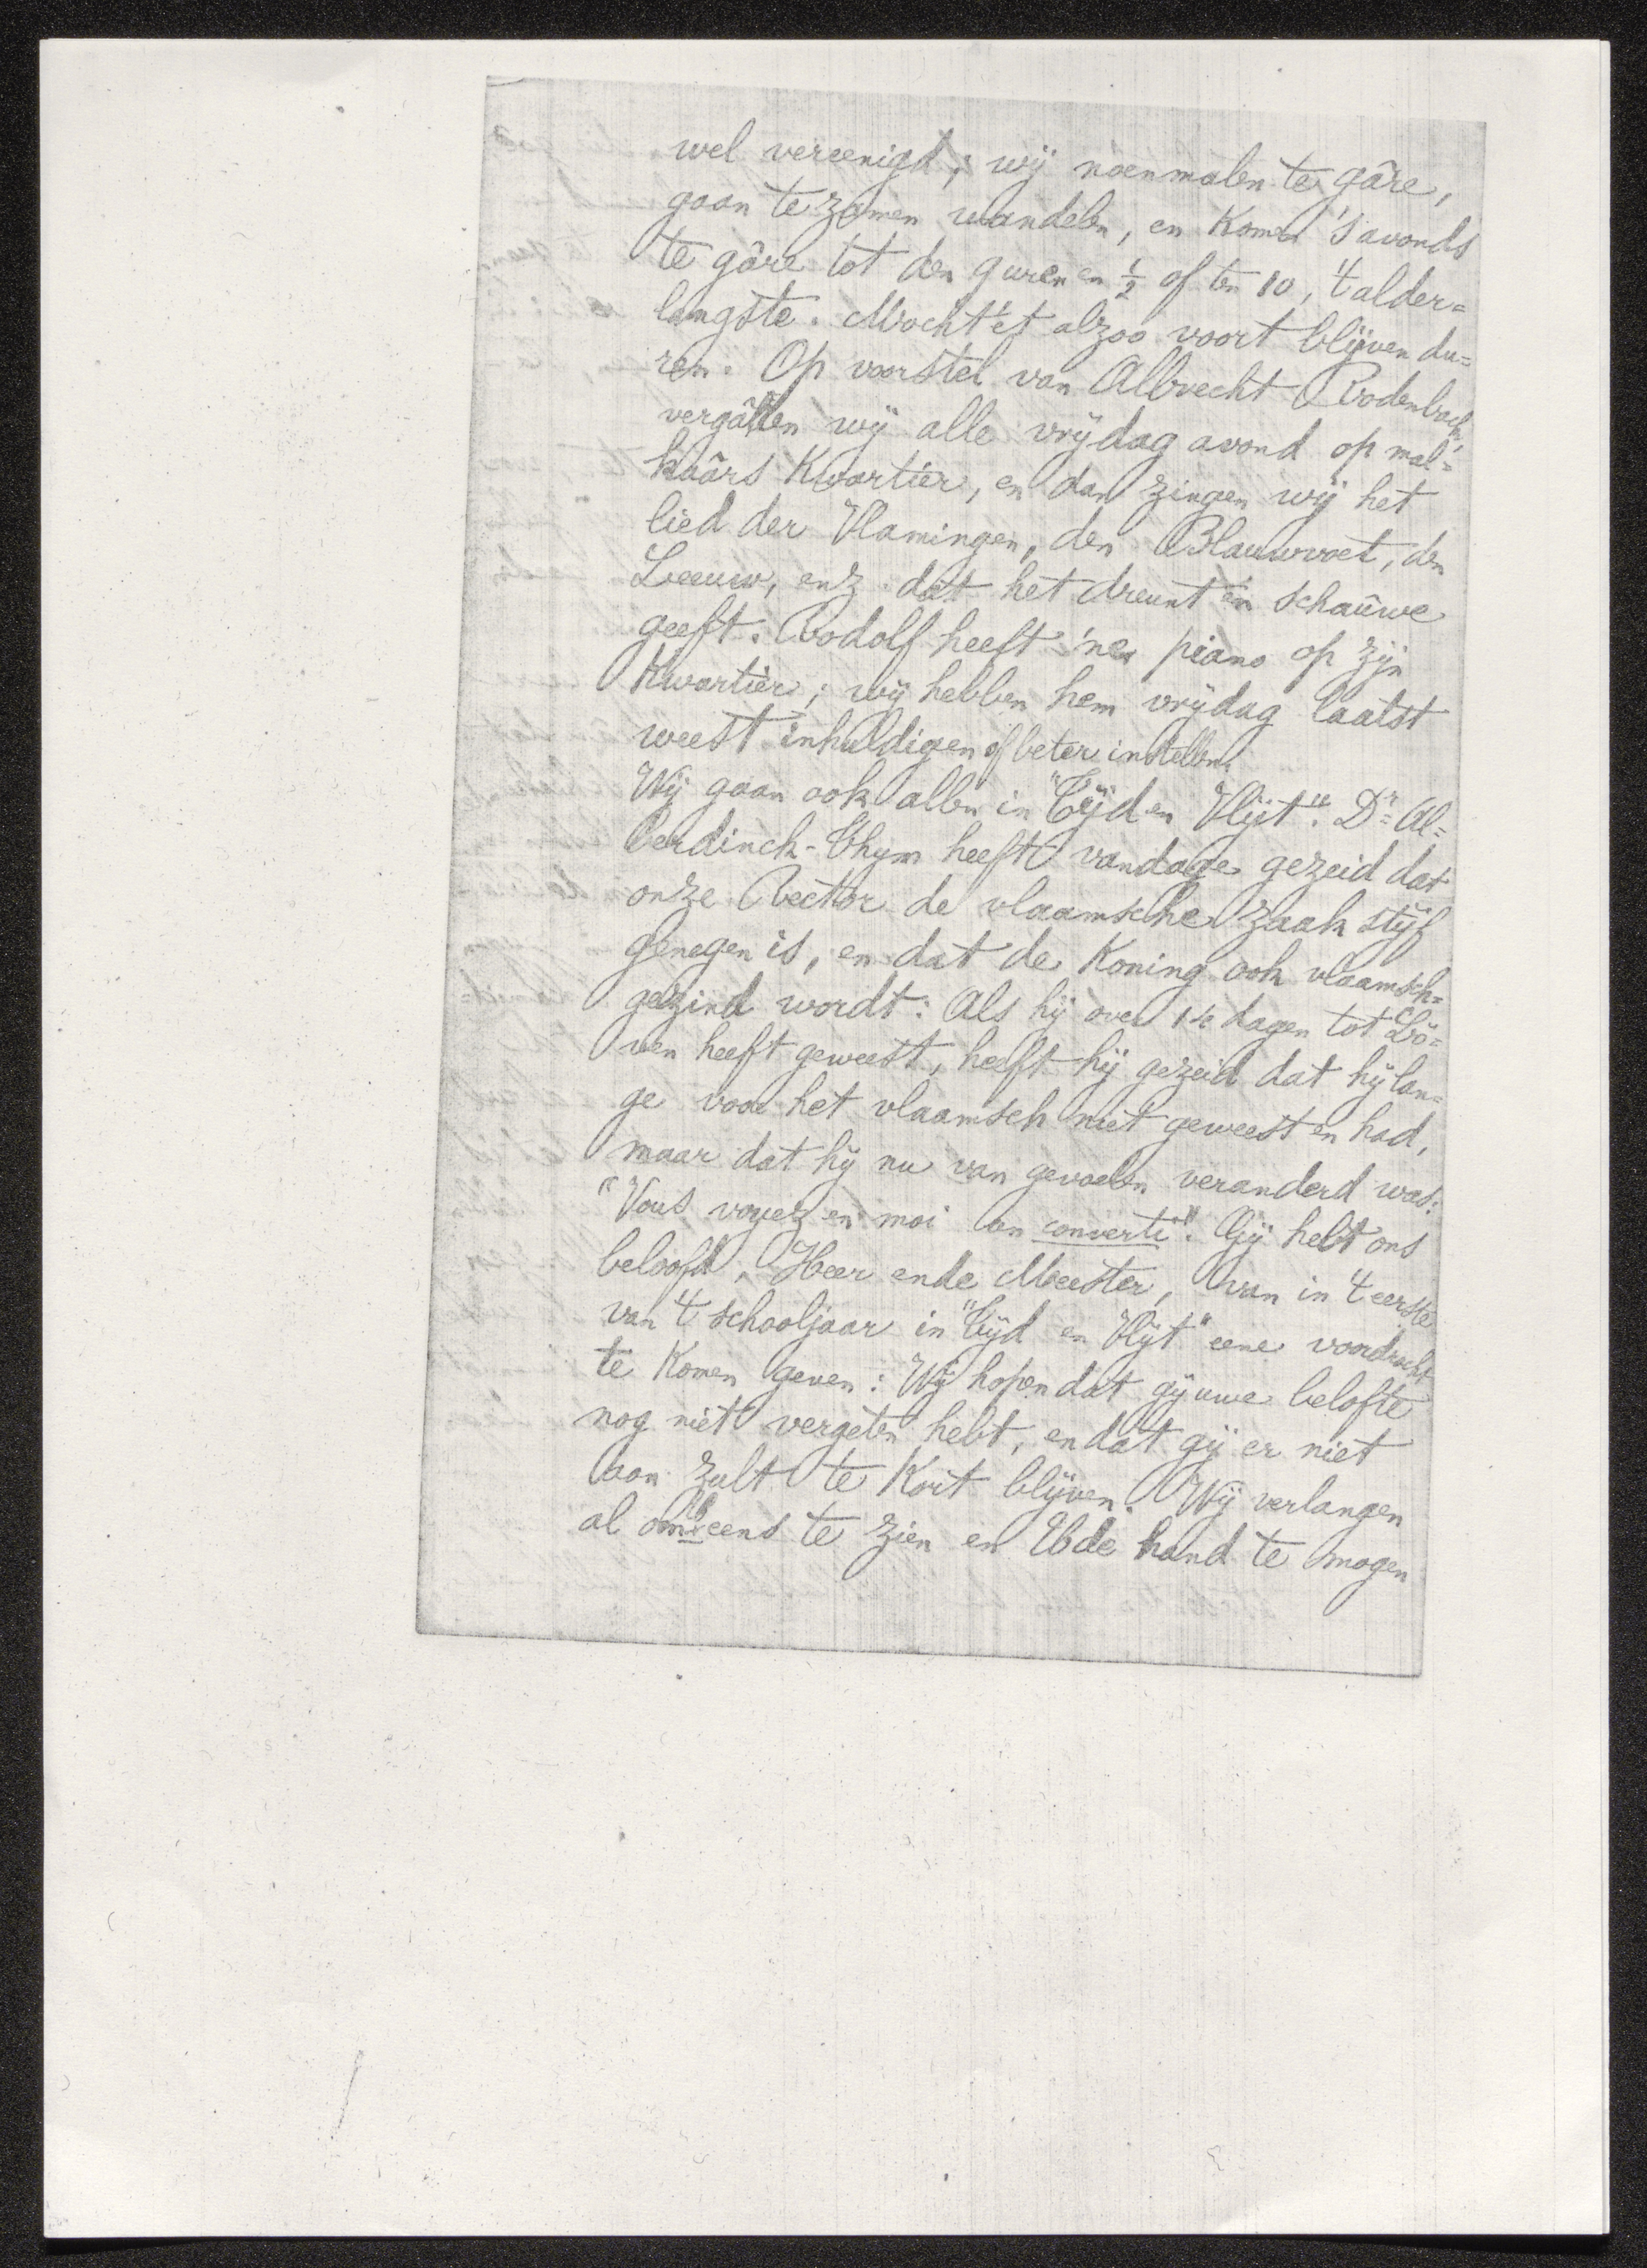 wel vereenigd; wij noenmalen te gâre,
gaan te zamen wandelen, en komen 's avonds
te gâre tot den 9 uren en ½ of ten 10, 't alder=
langste. Mocht 'et alzoo voort blijven du=
ren. Op voorstel van Albrecht Rodenbach,
vergâren wij alle vrijdag avond op mal=
kaârs Kwartier, en dan zingen wij het
lied der Vlamingen, den Blauwvoet, den
Leeuw, enz. dat het dreunt en schauwe
geeft. Rodolf heeft 'nen piano op zijn
Kwartier; wij hebben hem vrijdag laatst
weest inhuldigen of beter instellen.
Wij gaan ook allen in "Tijd en Vlijt". Dr. Al=
berdinck-Thym heeft vandage gezeid dat
onze Rector de vlaamsche zaak stijf
genegen is, en dat de Koning ook vlaamsch=
gezind wordt: Als hij over 14 dagen tot Lö=
ven heeft geweest, heeft hij gezeid dat hij lan=
ge voor het vlaamsch niet geweest en had,
maar dat hij nu van gevoelen veranderd was:
"Vous voyez en moi un converti". Gij hebt ons
beloofd, Heer ende Meester, van in 't eerste
van 't schooljaar in "Tijd en Vlijt" eene voordracht
te komen geven: Wij hopen dat gij uwe belofte
nog niet vergeten hebt, en dat gij er niet
aan zult te kort blijven. Wij verlangen
al om U eens te zien en U de hand te mogen